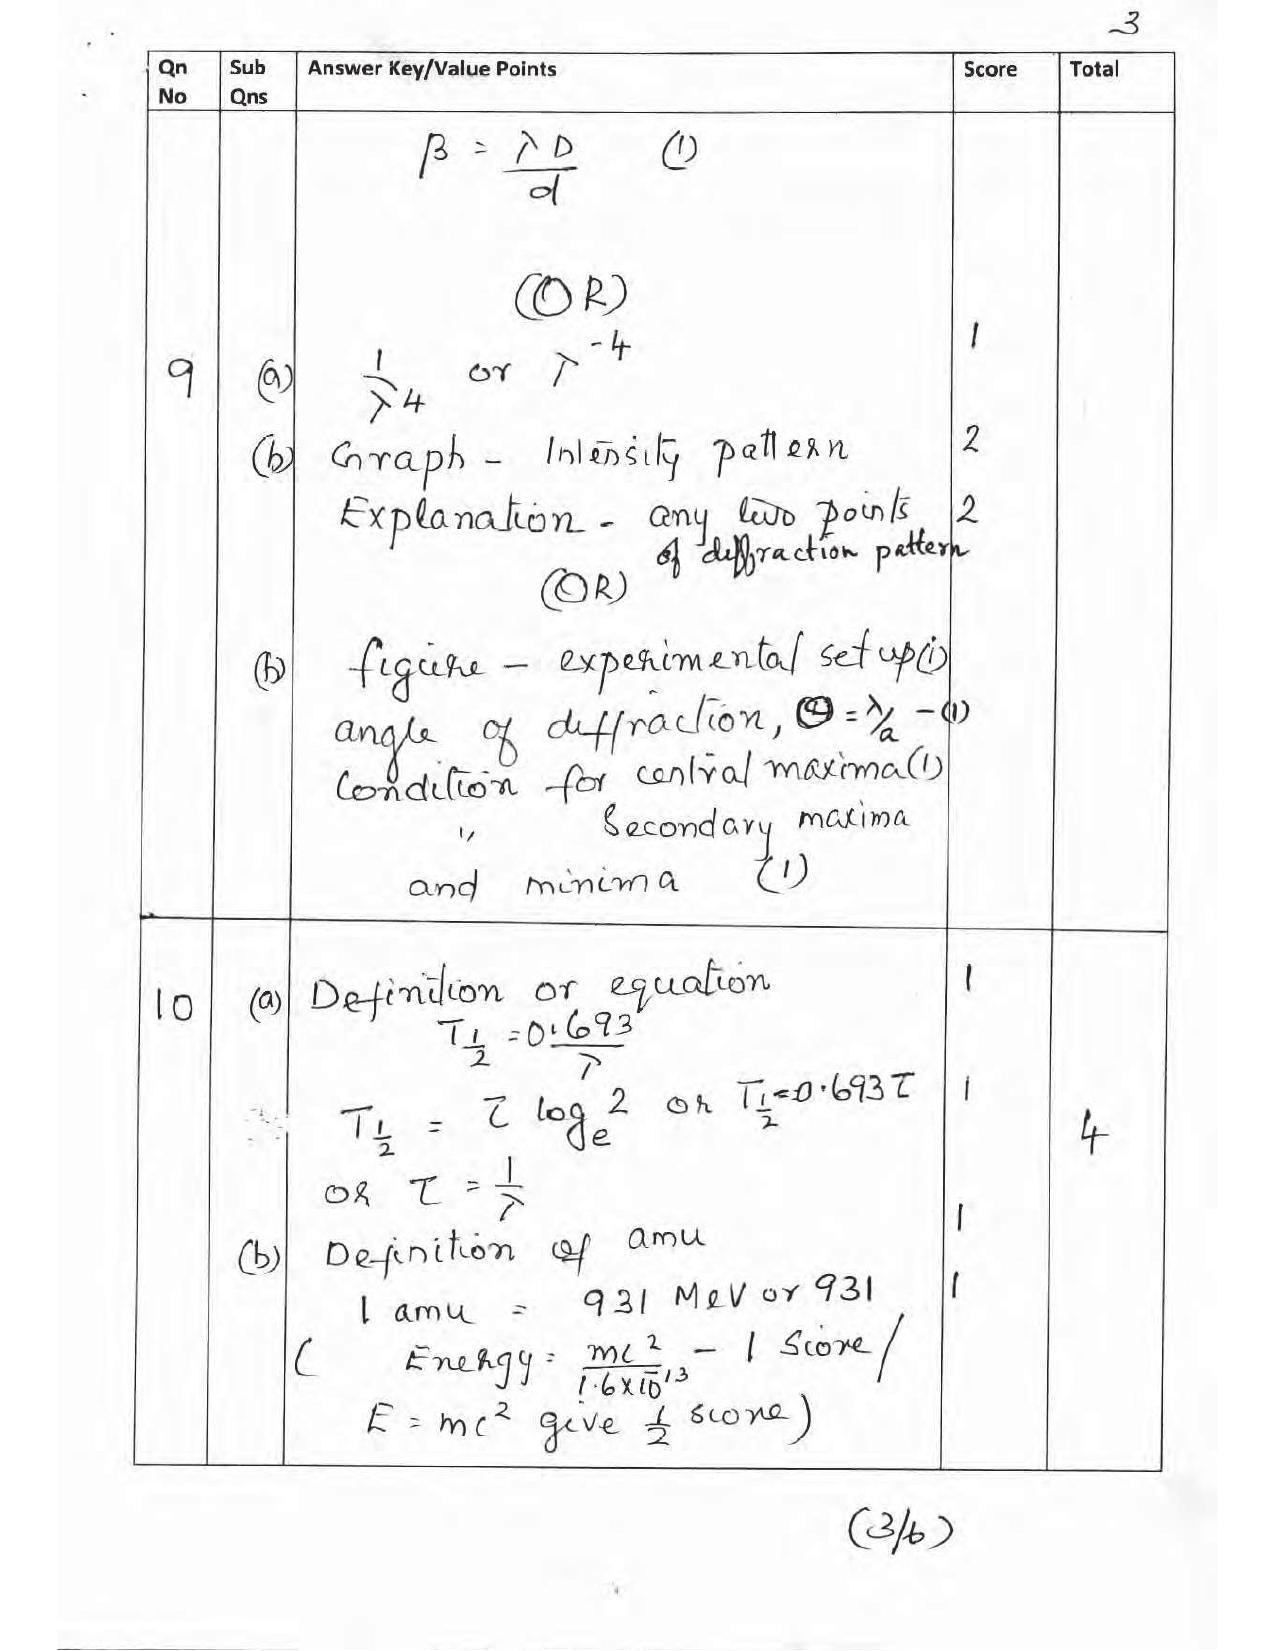 3
Qn No Sub Qns Answer Key/Value Points Score Total
β = λD/d (1)
(OR)
9 (a) 1/λ4 or λ^-4 1
(b) Graph - Intensity pattern 2
Explanation - any two points 2
of diffraction pattern
(OR)
(b) figure - experimental set up (1)
angle of diffraction, θ = λ/a - (1)
Condition for central maxima (1)
" Secondary maxima
and minima (1)
10 (a) Definition or equation 1
T1/2 = 0.693/λ
T1/2 = τ log_e 2 or T1/2 = 0.693 τ 1
or τ = 1/λ
4
(b) Definition of amu 1
1 amu = 931 MeV or 931 1
( Energy = mc²/1.6×10^-13 - 1 Score /
E = mc² give 1/2 score)
(3/6)